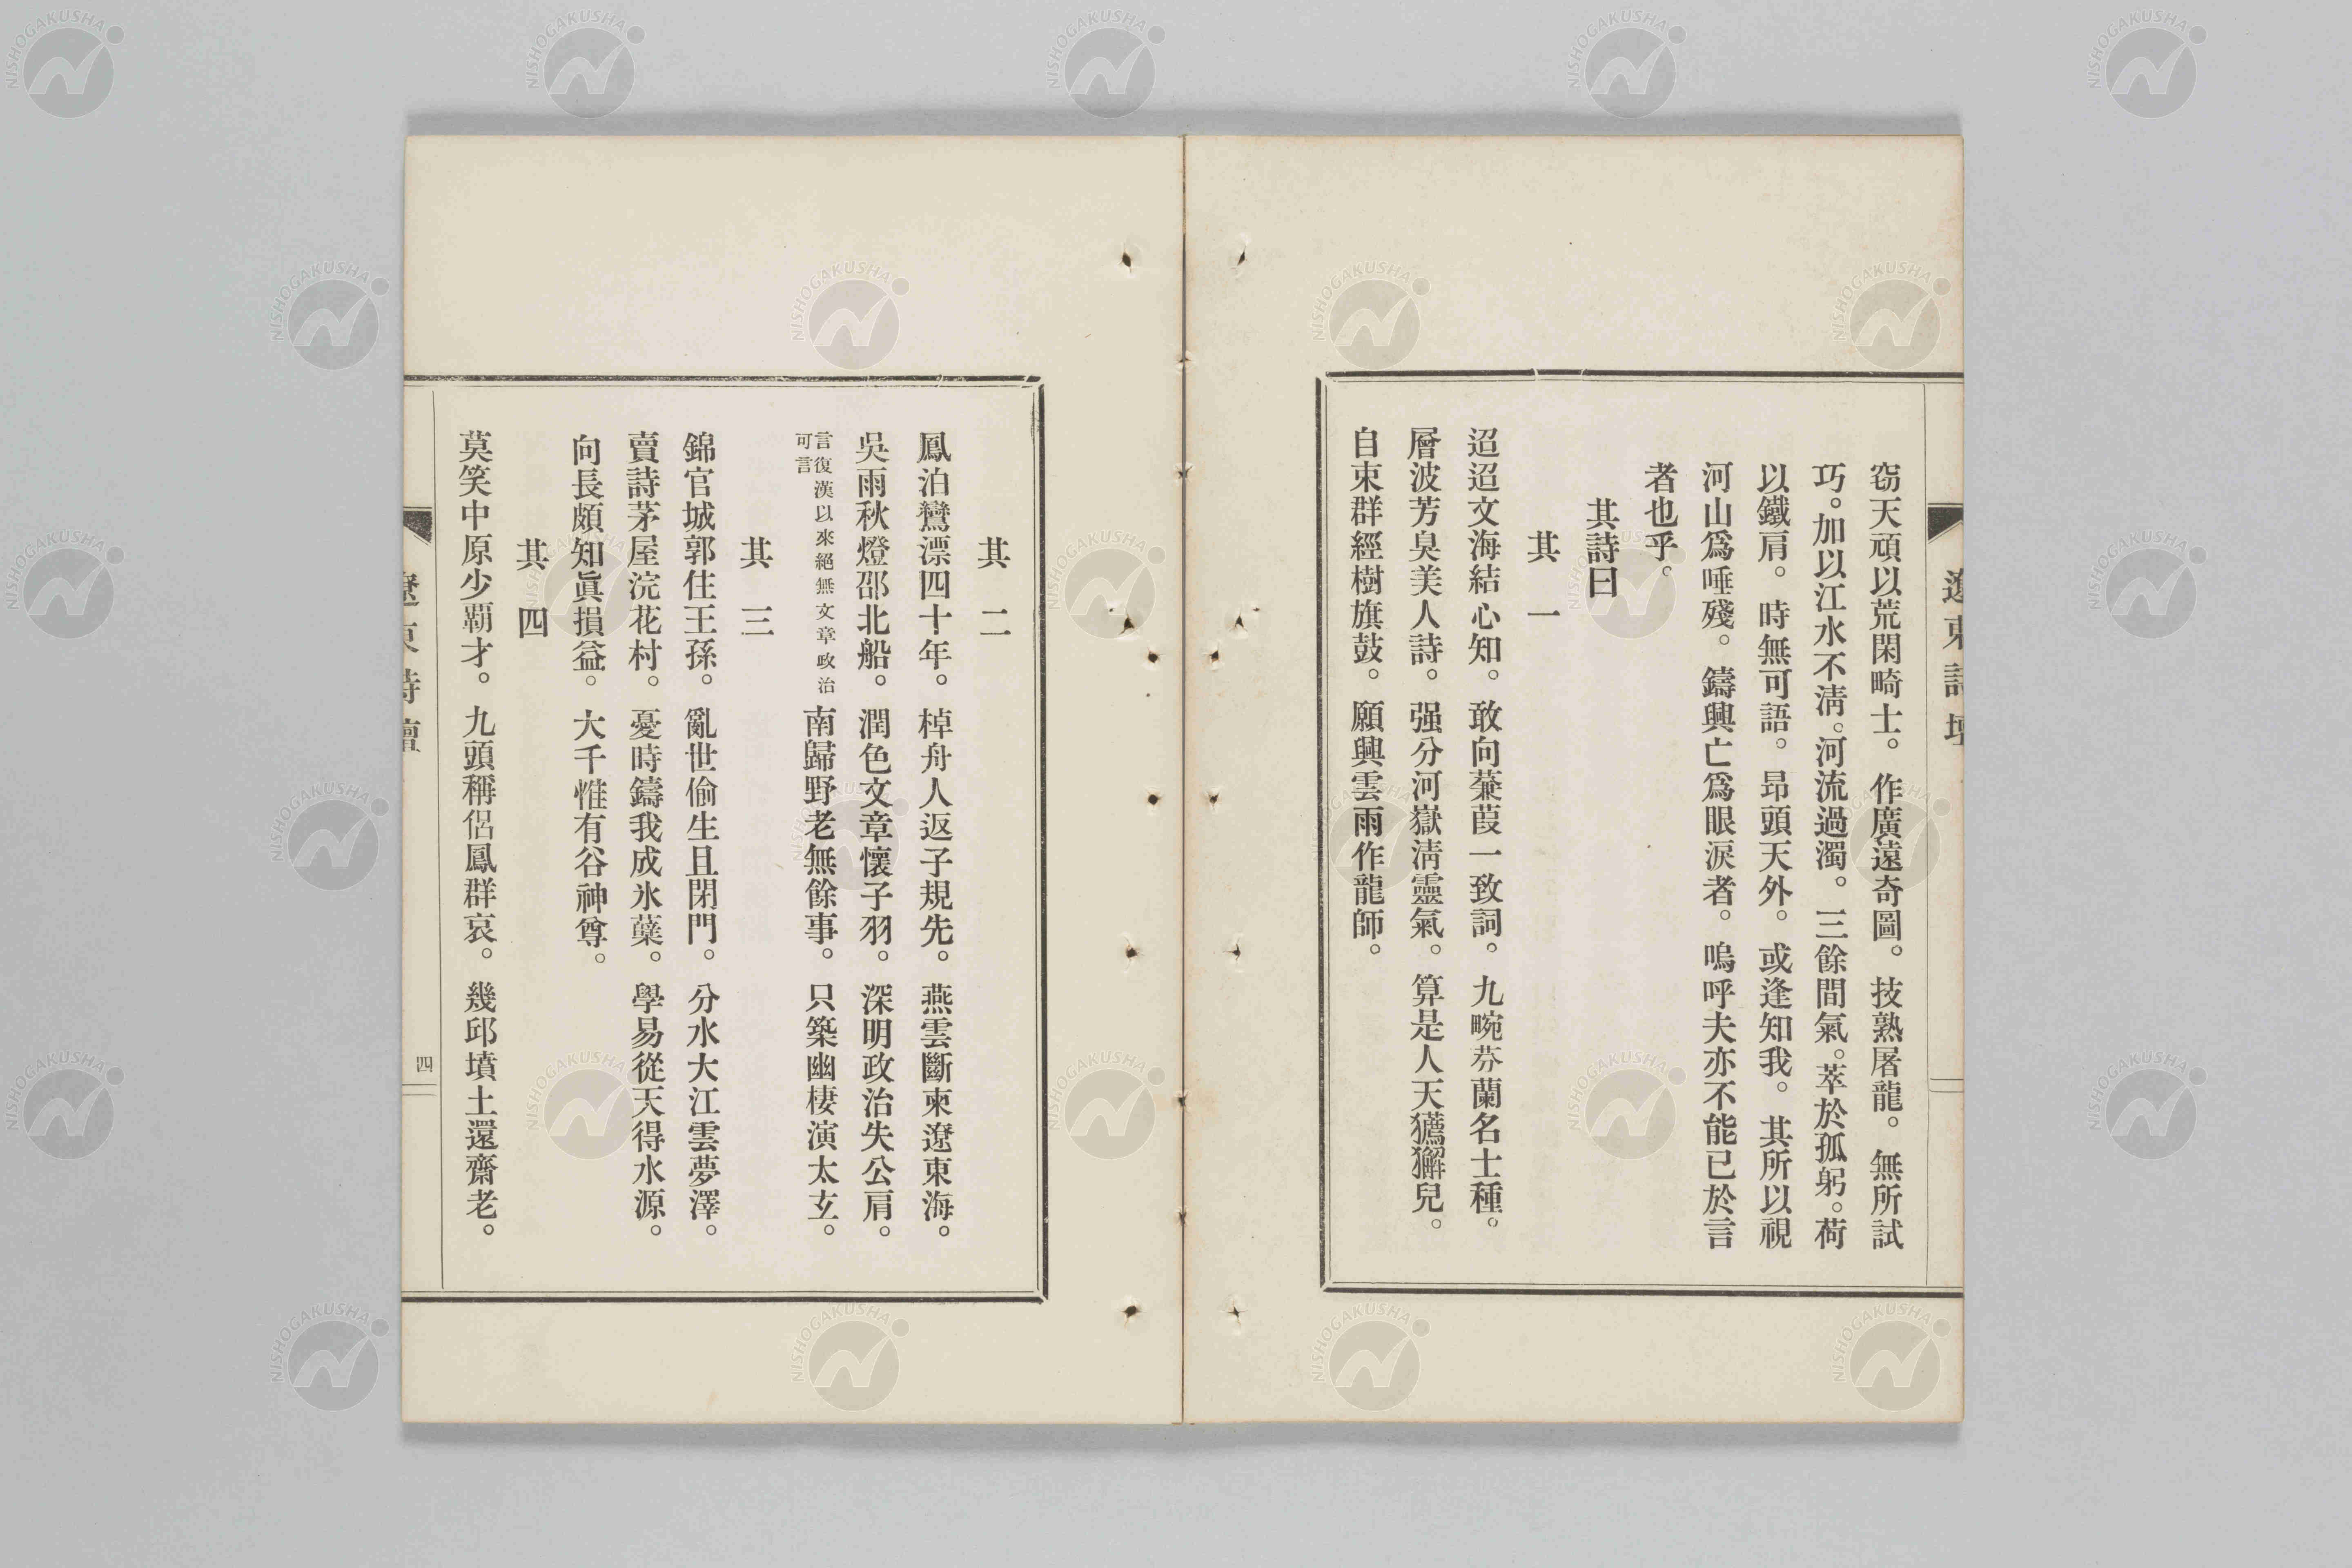 遼東詩壇
窃天頑以荒閑畸士。作廣遠奇圖。技熟屠龍。無所試
巧。加以江水不淸。河流過濁。三餘間氣。萃於孤躬。荷
以鐵肩。時無可語。昻頭天外。或逢知我。其所以視
河山爲唾殘。鑄興亡爲眼淚者。嗚呼夫亦不能已於言
者也乎。
其詩曰
其一
迢迢文海結心知。敢向蒹葭一致詞。九畹芬蘭名士種。
層波芳臭美人詩。强分河嶽淸靈氣。算是人天獾獬兒。
自束群經樹旗鼓。願興雲雨作龍師。
其二
鳳泊鸞漂四十年。棹舟人返子規先。燕雲斷柬遼東海。
吳雨秋燈邵北船。潤色文章懷子羽。深明政治失公肩。
言復漢以來絕無文章政治
可言
南歸野老無餘事。只築幽棲演太玄。
其三
錦官城郭住王孫。亂世偷生且閉門。分水大江雲夢澤。
賣詩茅屋浣花村。憂時鑄我成氷蘗。學易從天得水源。
向長頗知眞損益。大千惟有谷神尊。
其四
莫笑中原少覇才。九頭稱侶鳳群哀。幾邱墳土還齋老。
遼東詩壇
四
NISHOGAKUSHA